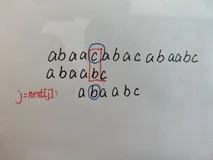 abaacabacabaabc
abaabc
j=next[j]: abaabc